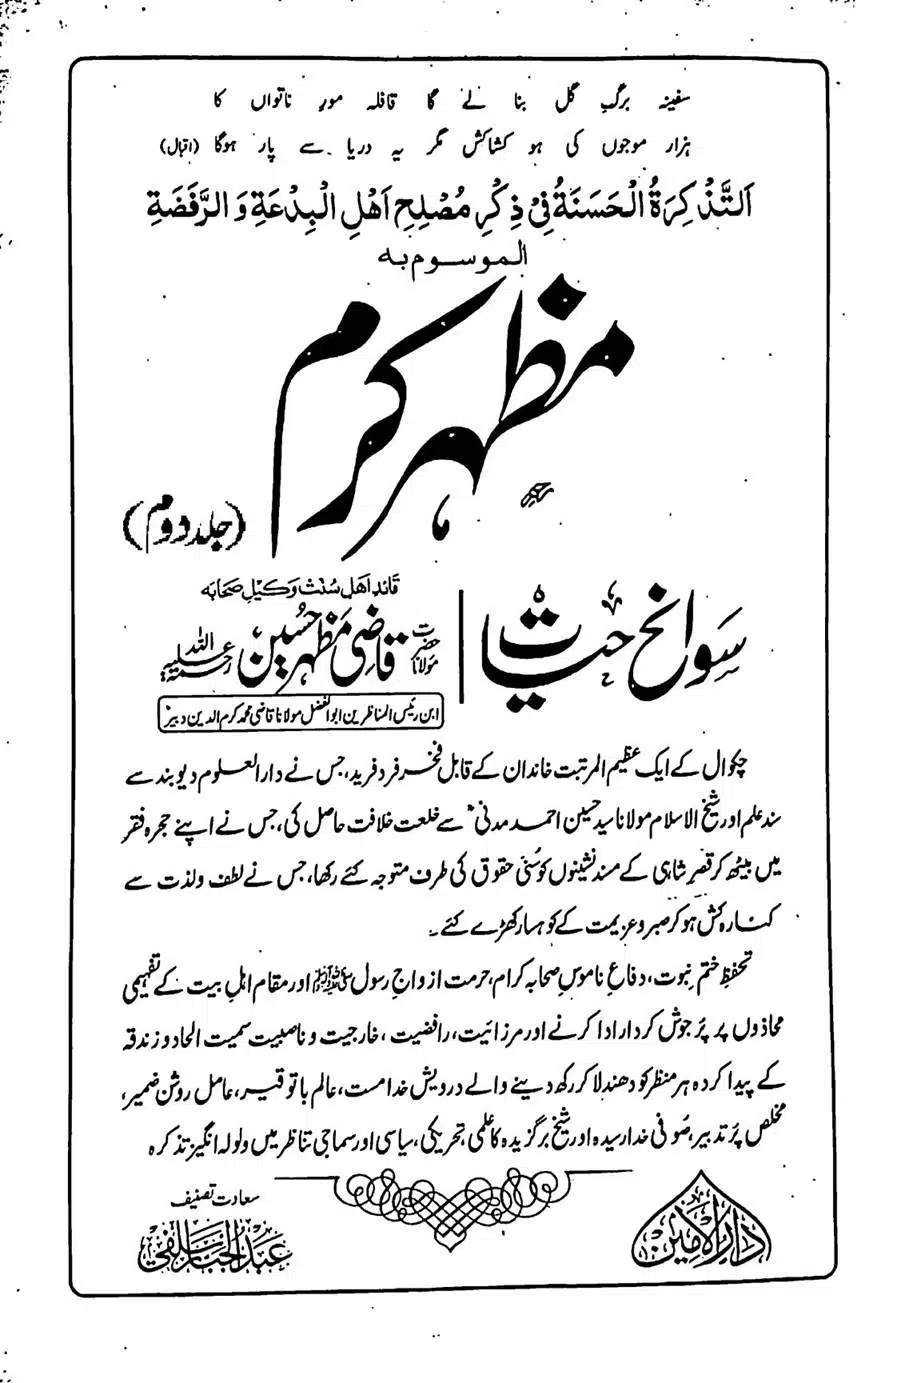 سفینہ برگِ گل بنا لے گا قافلہ مورِ ناتواں کا
ہزار موجوں کی ہو کشاکش مگر یہ دریا سے پار ہوگا (اقبال)
اَلتَّذْکِرَةُ الْحَسَنَةُ فِیْ ذِکْرِ مُصْلِحِ اَهْلِ الْبِدْعَةِ وَالرَّفَضَةِ
الموسوم به
مظہر کرم
(جلد دوم)
سوانح حیات
قائد اھل سُنّت وکیلِ صحابه
حضرت مولانا قاضی مظہر حسین رحمۃ اللہ علیہ
ابن رئیس المناظرین ابوالفضل مولانا قاضی محمد کرم الدین دبیرؒ
چکوال کے ایک عظیم المرتبت خاندان کے قابل فخر فرد فرید، جس نے دارالعلوم دیوبند سے
سند علم اور شیخ الاسلام مولانا سید حسین احمد مدنیؒ سے خلعت خلافت حاصل کی، جس نے اپنے حجرہ فقر
میں بیٹھ کر قصرِ شاہی کے مسند نشینوں کو سُنّی حقوق کی طرف متوجہ کئے رکھا، جس نے لطف ولذت سے
کنارہ کش ہو کر صبر و عزیمت کے کوہسار کھڑے کئے۔
تحفظِ ختم نبوت، دفاعِ ناموسِ صحابہ کرام، حرمت ازواجِ رسول ﷺ اور مقام اہلِ بیت کے تفہیمی
محاذوں پر پُرجوش کردار ادا کرنے اور مرزائیت، رافضیت، خارجیت و ناصبیت سمیت الحاد و زندقہ
کے پیدا کردہ ہر منظر کو دھندلا کر رکھ دینے والے درویش خدامست، عالم باتوقیر، عامل روشن ضمیر،
مخلص پُرتدبیر، صُوفی خدارسیدہ اور شیخ برگزیدہ کا علمی، تحریکی، سیاسی اور سماجی تناظر میں ولولہ انگیز تذکرہ
سعادت تصنیف
عبدالجبار سلفی
دارالامین